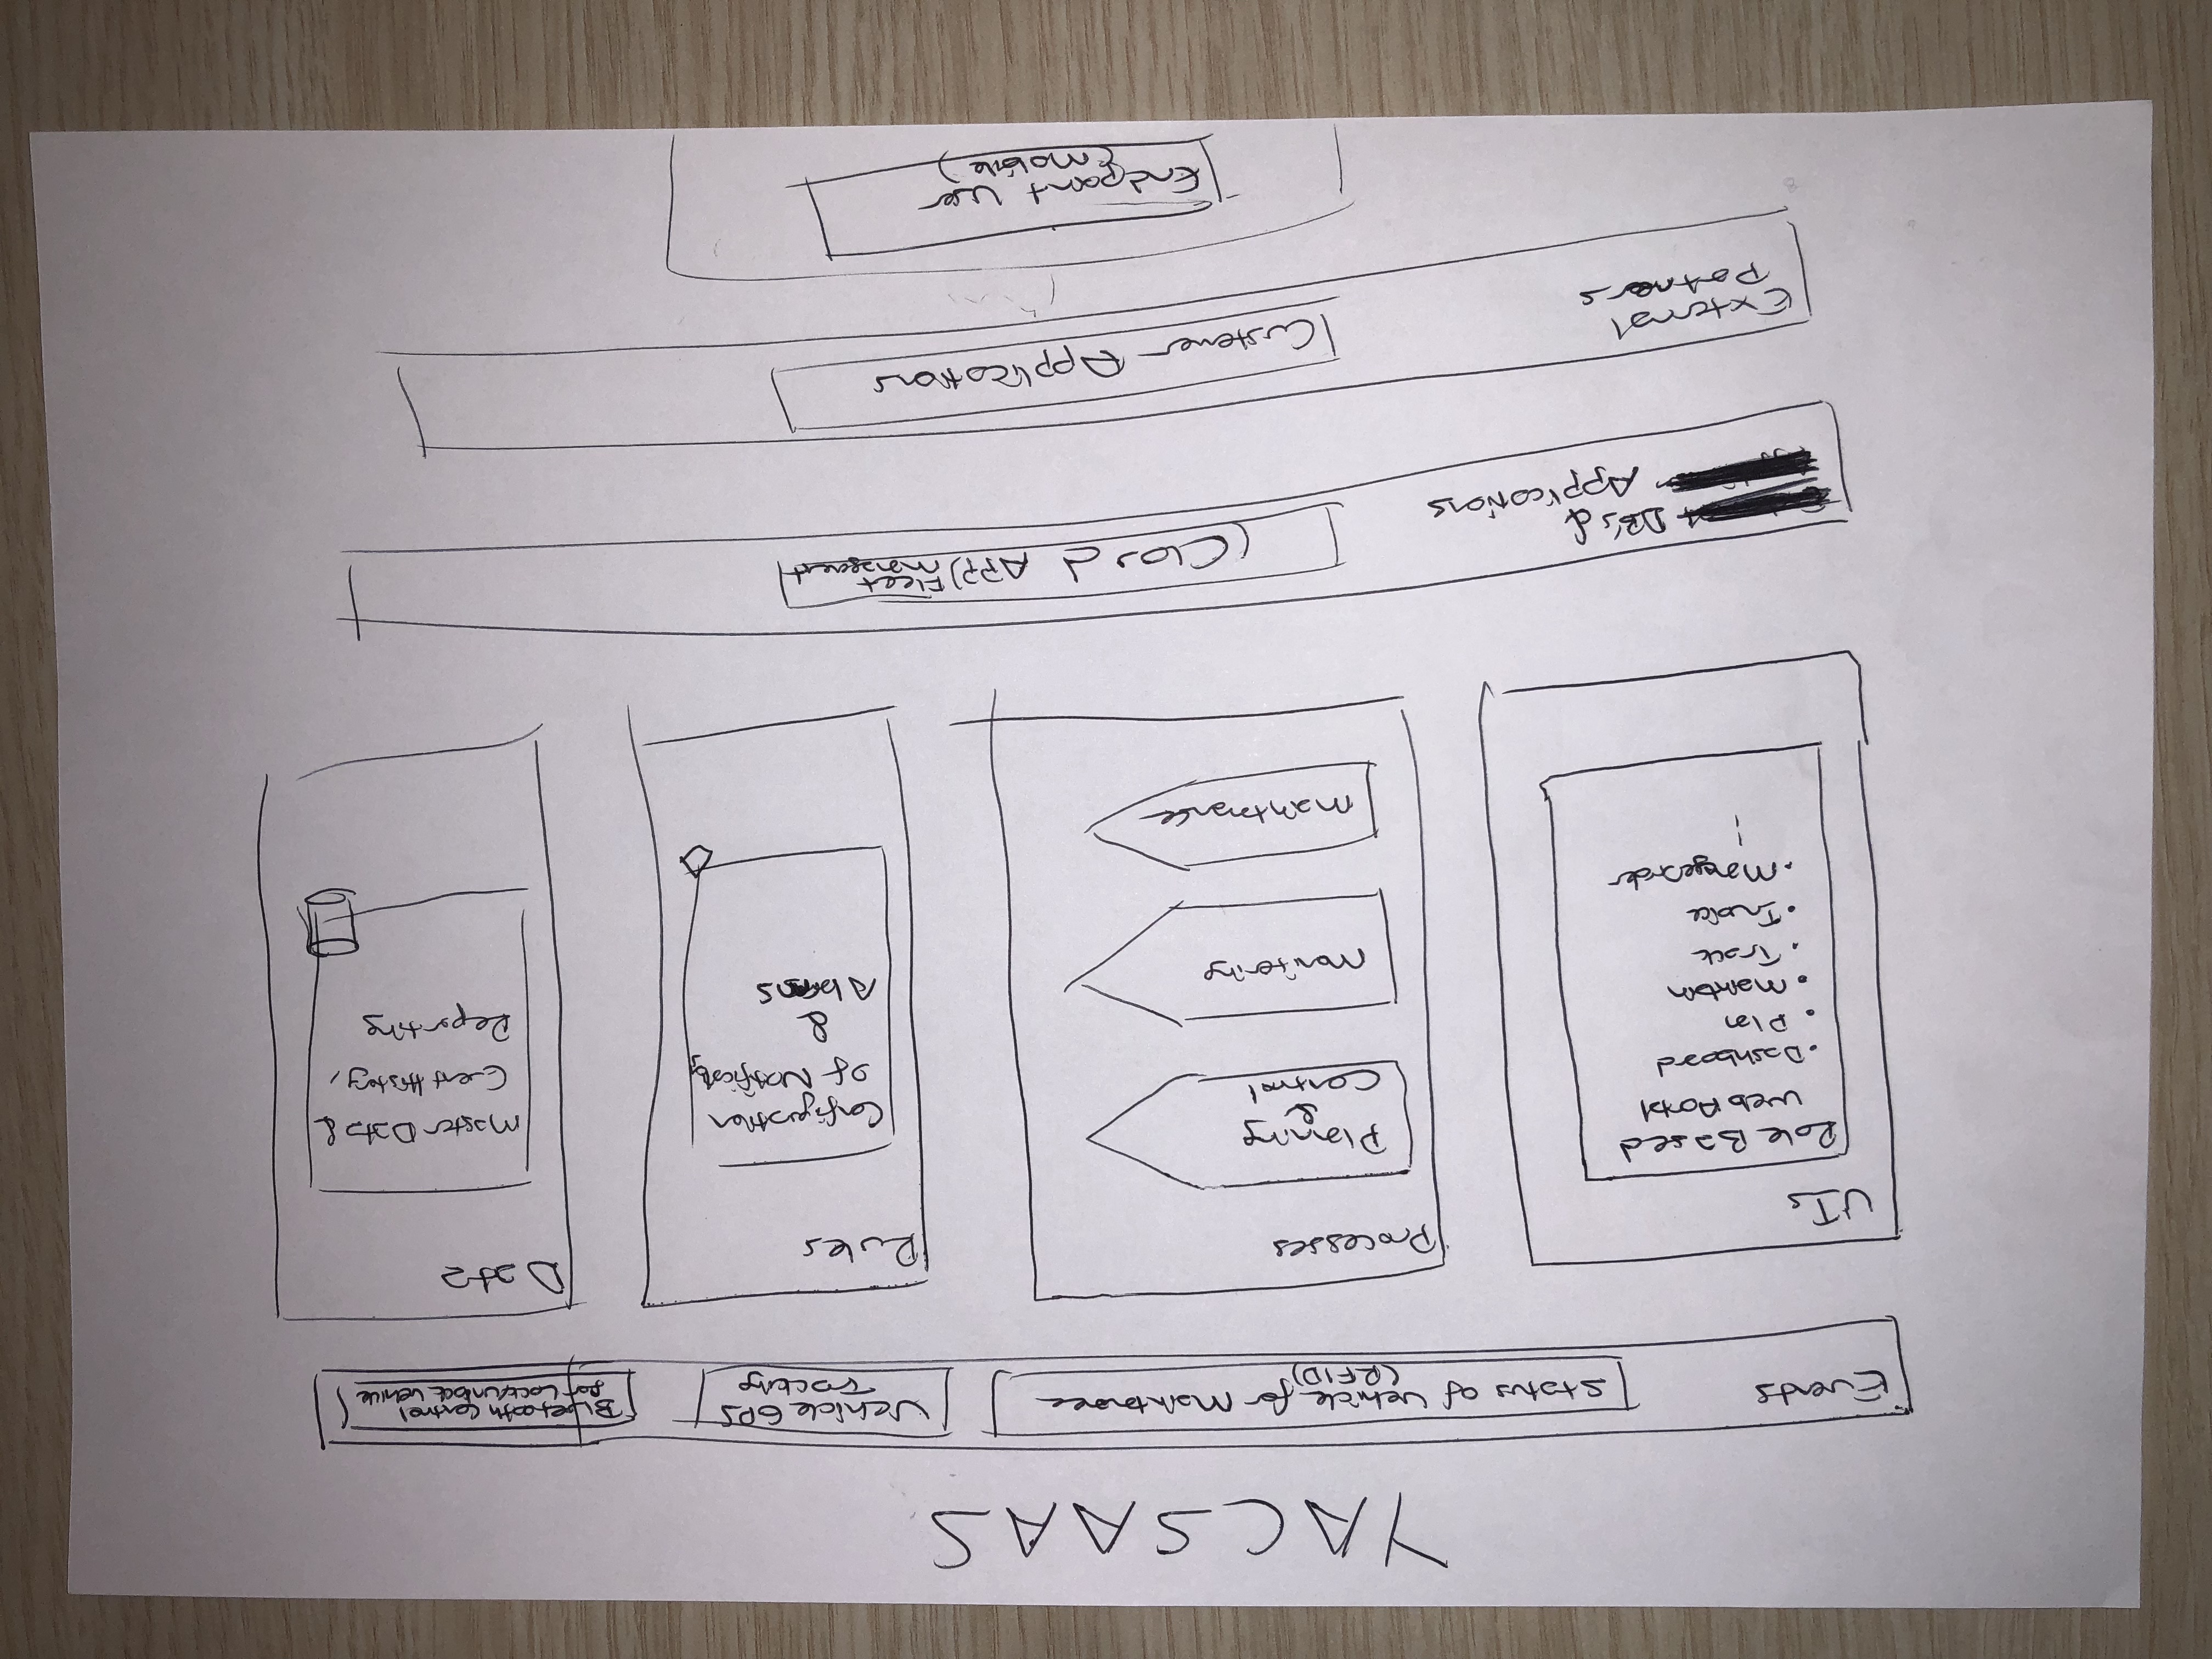 YACSAAS
Events
Status of Vehicle for Maintenance
(RFID)
Vehicle GPS
Tracking
Bluetooth Control
for Lock/unlock vehicle
UIs
Role Based
Web Portal
. Dashboard
. Plan
. Maintain
. Track
. Invoice
. Manage Order
Processes
Planning
&
Control
Monitoring
Maintenance
Rules
Configuration
of
&
Alarms
Data
Master Data &
Event History,
Reporting
DB's &
Applications
(Cloud APP) Fleet
Management
External
Partners
Customer Applications
Endpoint User
(Mobile)